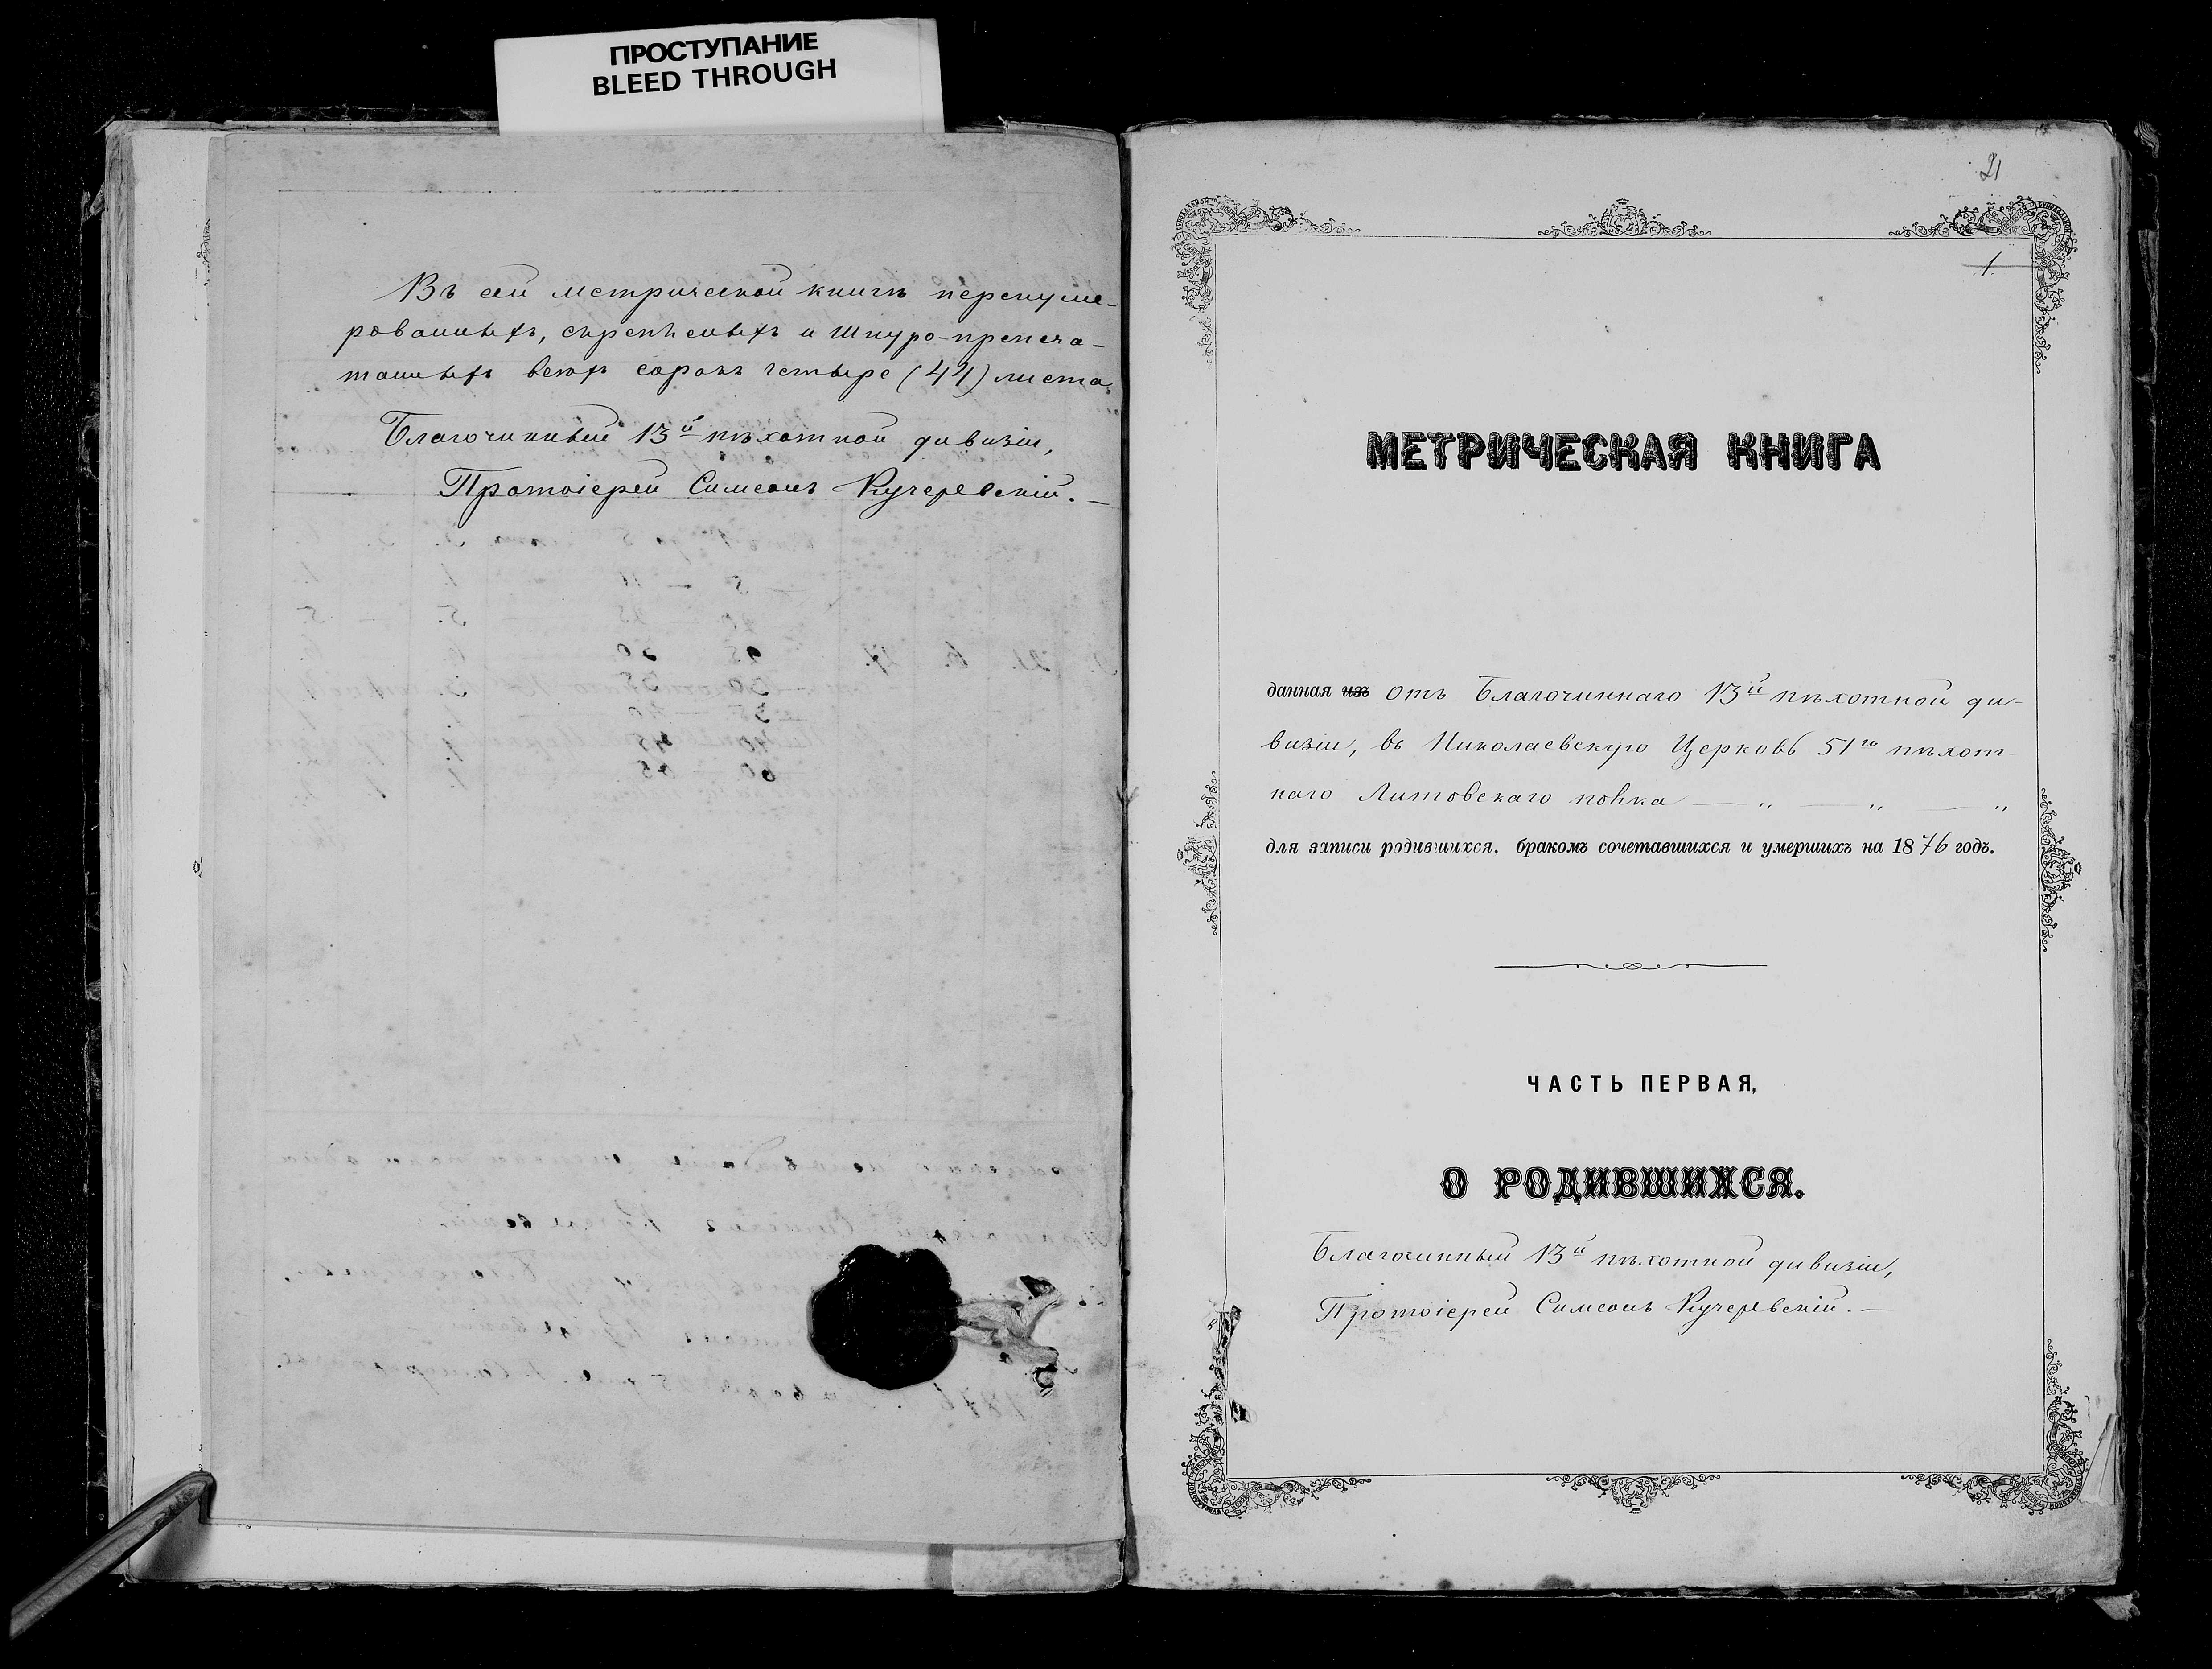 ПРОСТУПАНИЕ
BLEED THROUGH
Въ сей метрической книгѣ перенуме-
рованныхъ, скрѣпленныхъ и шнуро-препеча-
танныхъ всѣхъ сорокъ четыре (44) листа.
Благочинный 13й пѣхотной дивизіи,
Протоіерей Симеонъ Кучеревскій.—
21
1.
МЕТРИЧЕСКАЯ КНИГА
данная изъ отъ Благочиннаго 13й пѣхотной ди-
визіи, въ Николаевскую Церковь 51го пѣхот-
наго Литовскаго полка — „ — „ — „
для записи родившихся, бракомъ сочетавшихся и умершихъ на 1876 годъ.
ЧАСТЬ ПЕРВАЯ,
О РОДИВШИХСЯ.
Благочинный 13й пѣхотной дивизіи,
Протоіерей Симеонъ Кучеревскій.—